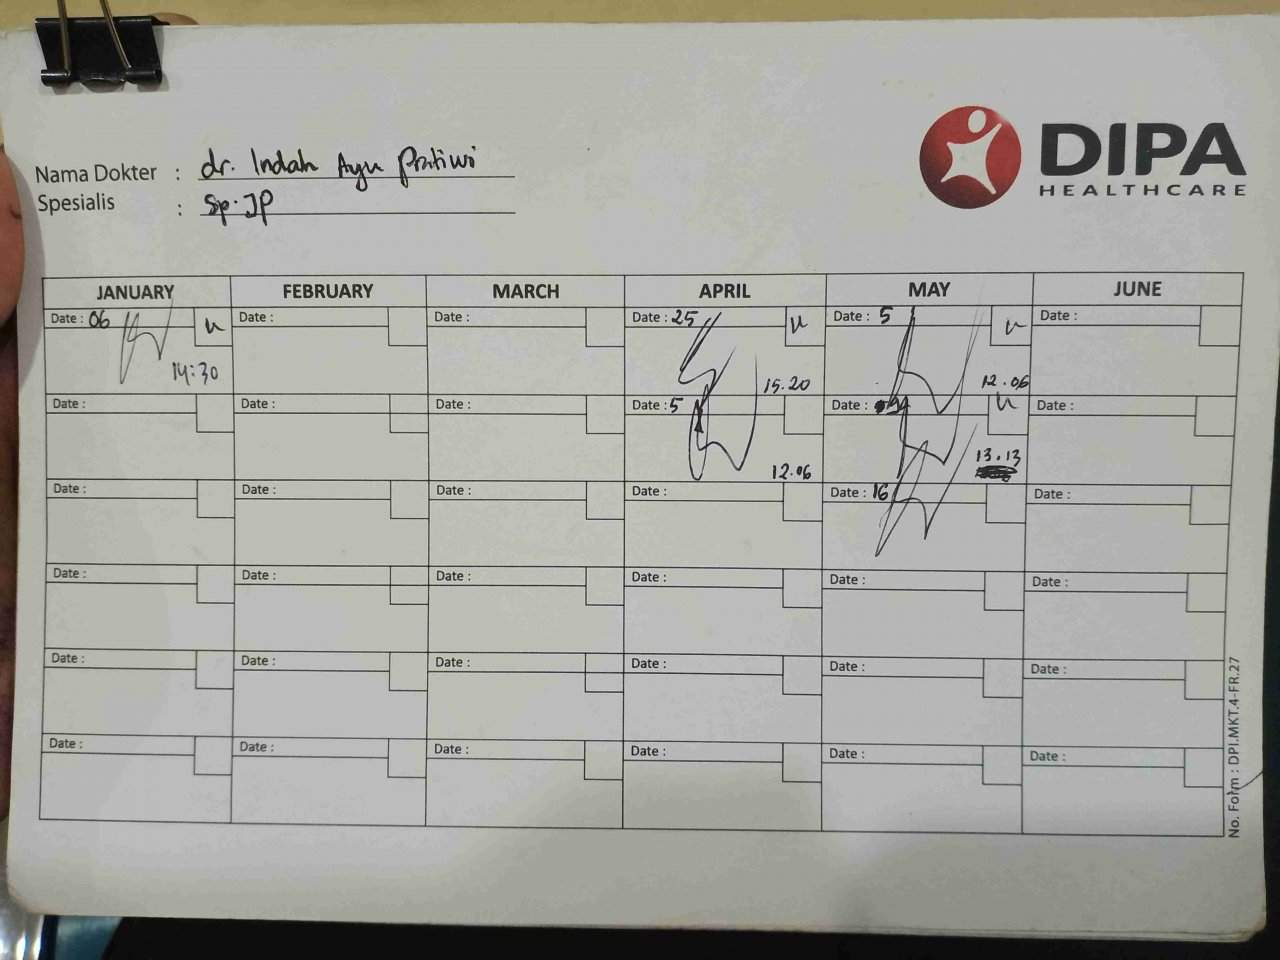 DIPA
HEALTHCARE
Nama Dokter : dr. Indah Ayu Pratiwi
Spesialis : Sp.JP
JANUARY FEBRUARY MARCH APRIL MAY JUNE
Date : 06 Date : Date : Date : 25 Date : 5 Date :
14:30 15.20 12.06
Date : Date : Date : Date : 5 Date : Date :
12.06 13.13
Date : Date : Date : Date : Date : 16 Date :
Date : Date : Date : Date : Date : Date :
Date : Date : Date : Date : Date : Date :
Date : Date : Date : Date : Date : Date :
No. Form : DPI.MKT.4-FR.27